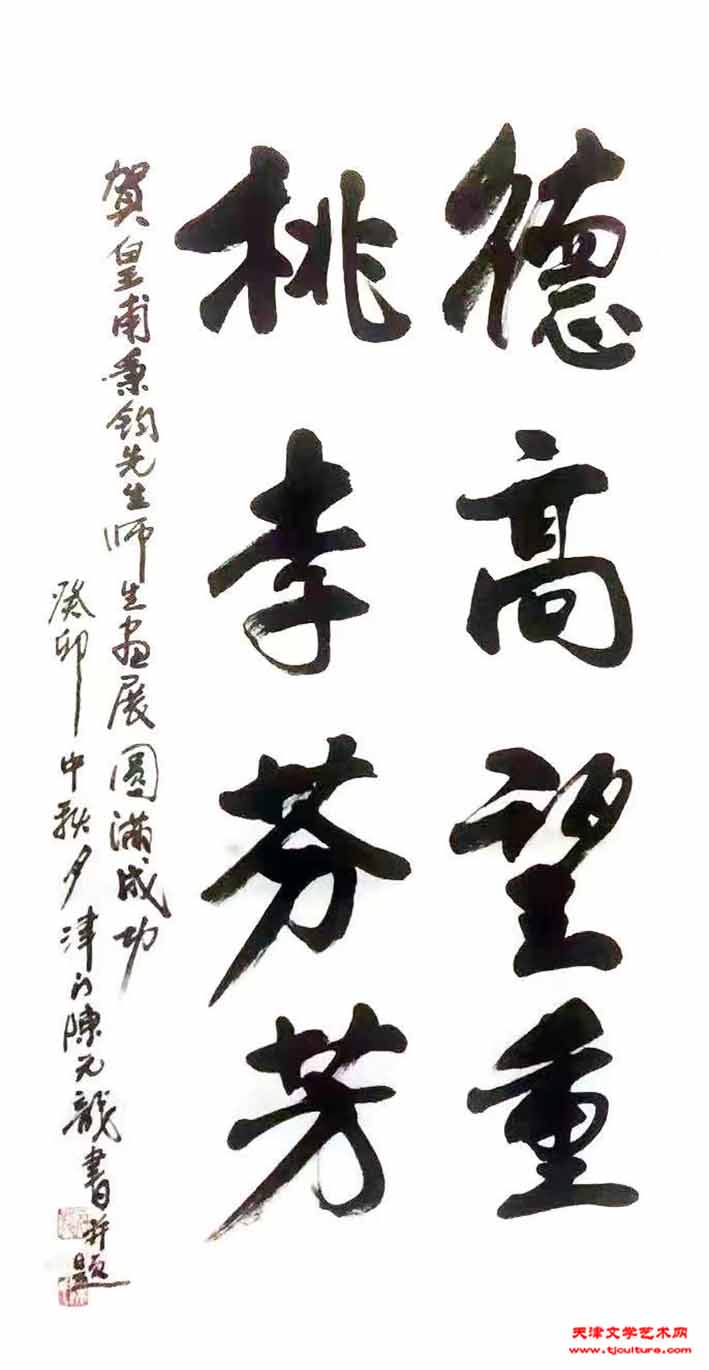 德高望重
桃李芬芳
賀皇甫秉鈞先生师生画展圆满成功
癸卯中秋夕津门陳元龍書并题
天津文学艺术网
www.tjculture.com